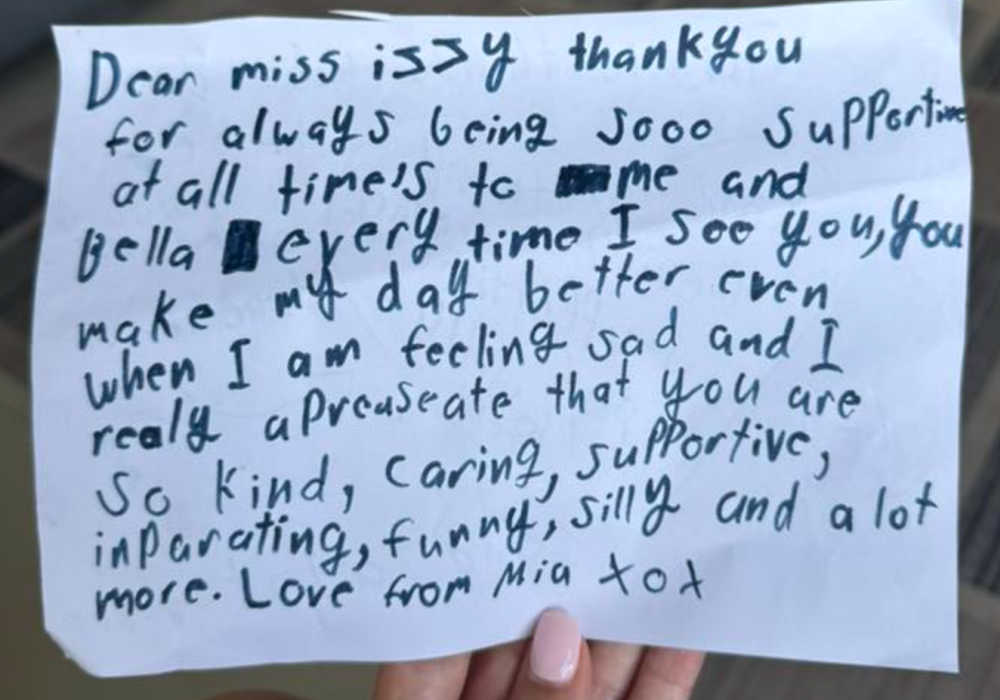 Dear miss issy thankyou
for always being sooo supportive
at all time's to me and
Bella every time I see you, you
make my day better even
when I am feeling sad and I
realy apreuseate that you are
so kind, caring, supportive,
inparating, funny, silly and a lot
more. Love from Mia xox